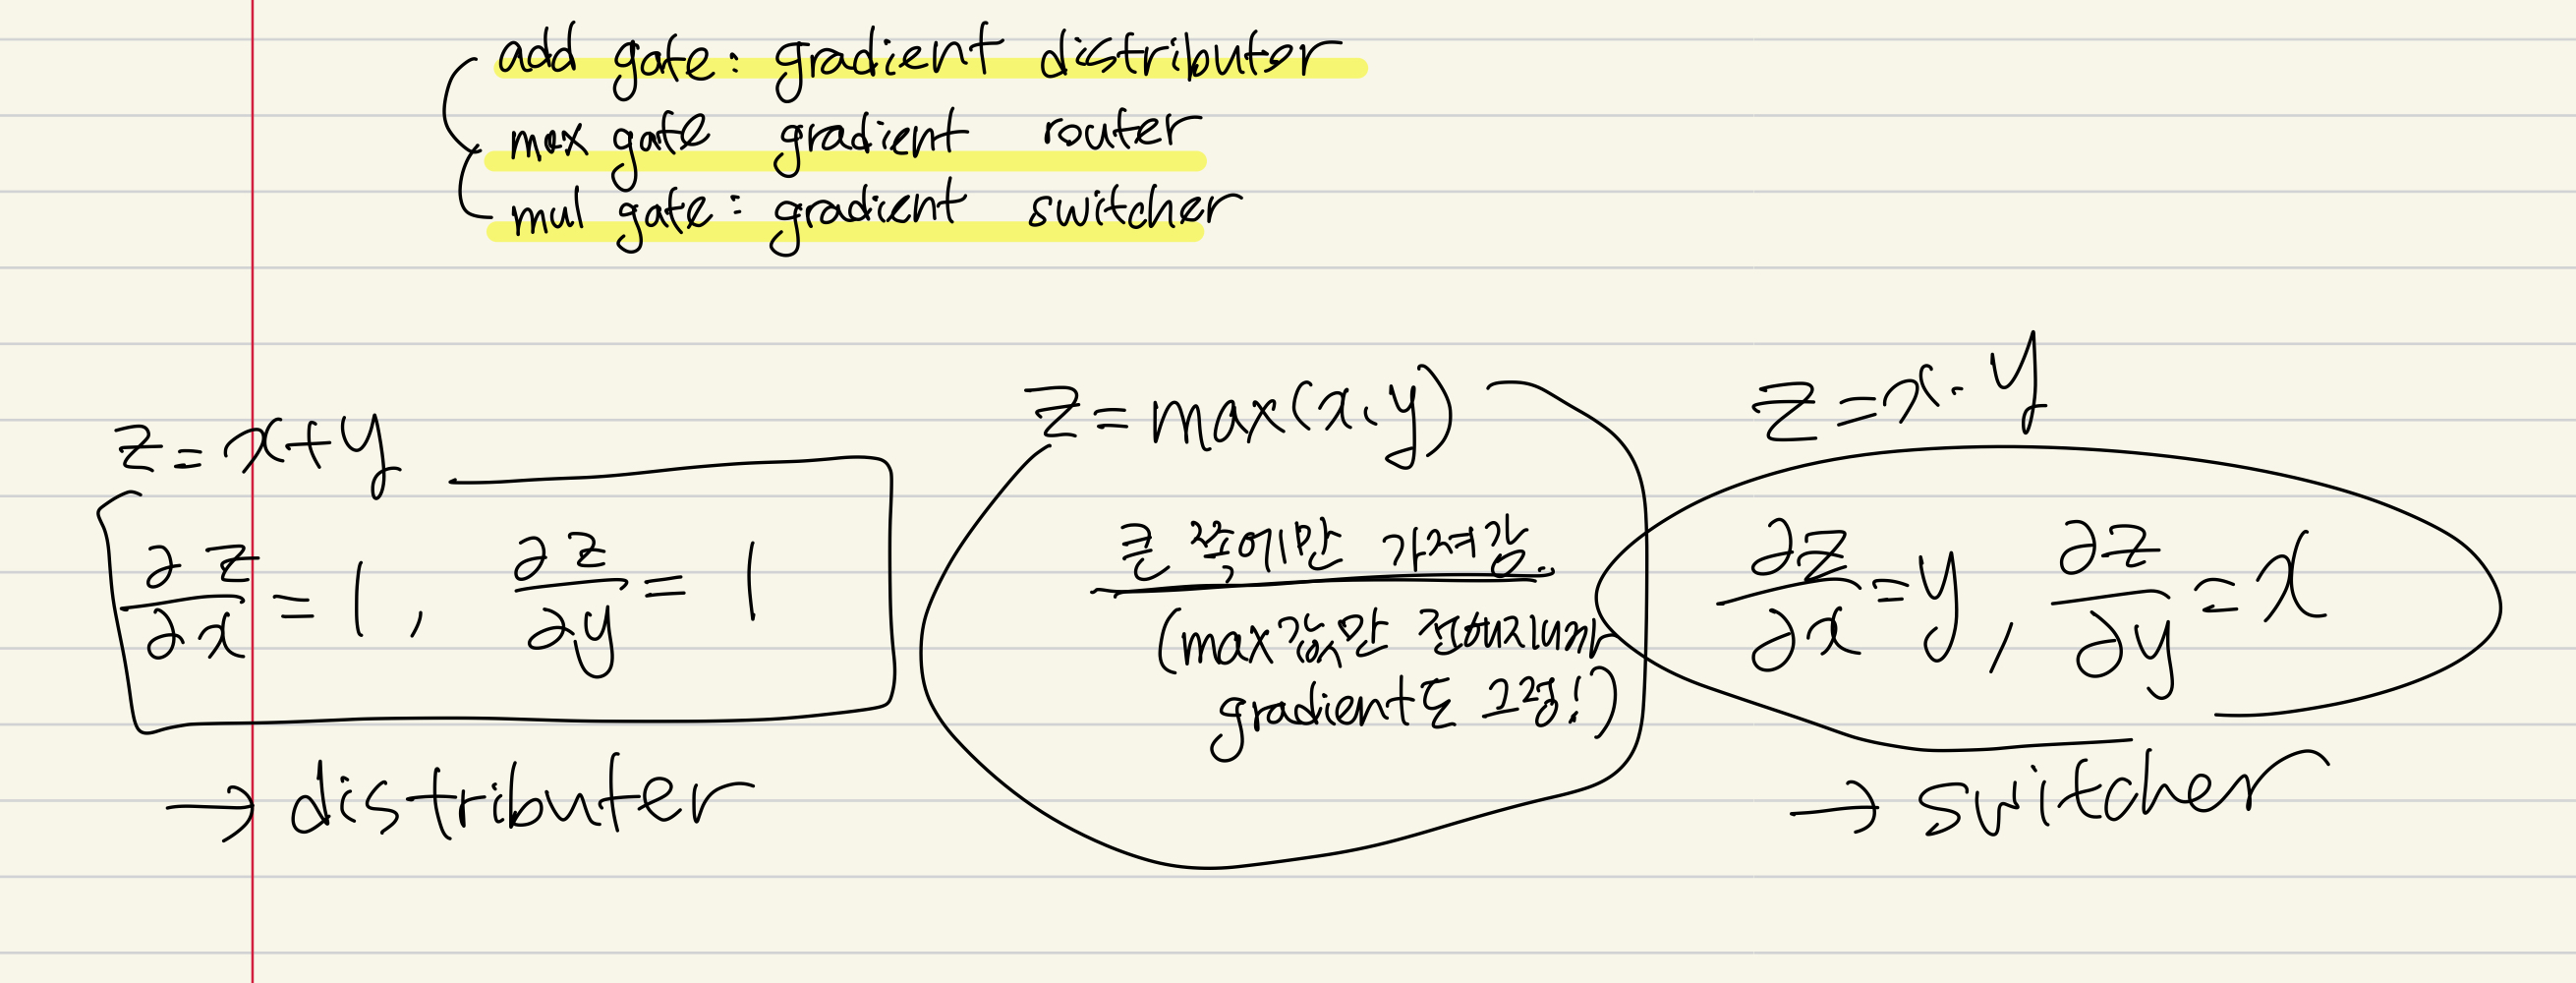 add gate: gradient distributor
max gate gradient router
mul gate: gradient switcher
z = x+y
∂z/∂x = 1, ∂z/∂y = 1
→ distributer
z = max(x,y)
큰 쪽에만 가져감.
(max값만 전해지니까
gradient도 그쪽!)
z = x·y
∂z/∂x = y, ∂z/∂y = x
→ switcher